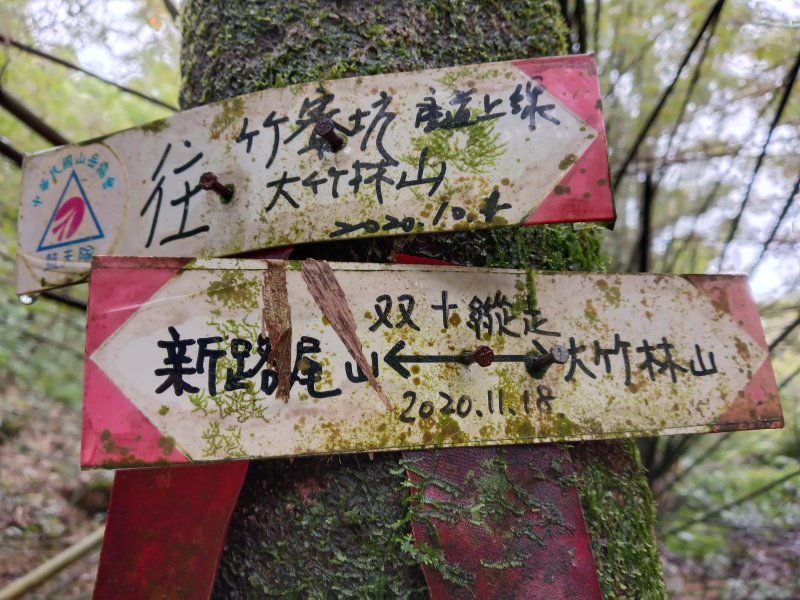 中華民國山岳協會
藍天隊
往
竹崙坑 產道上線
大竹林山
2020.10.4
双十縱走
新路尾山 ↔ 大竹林山
2020.11.18